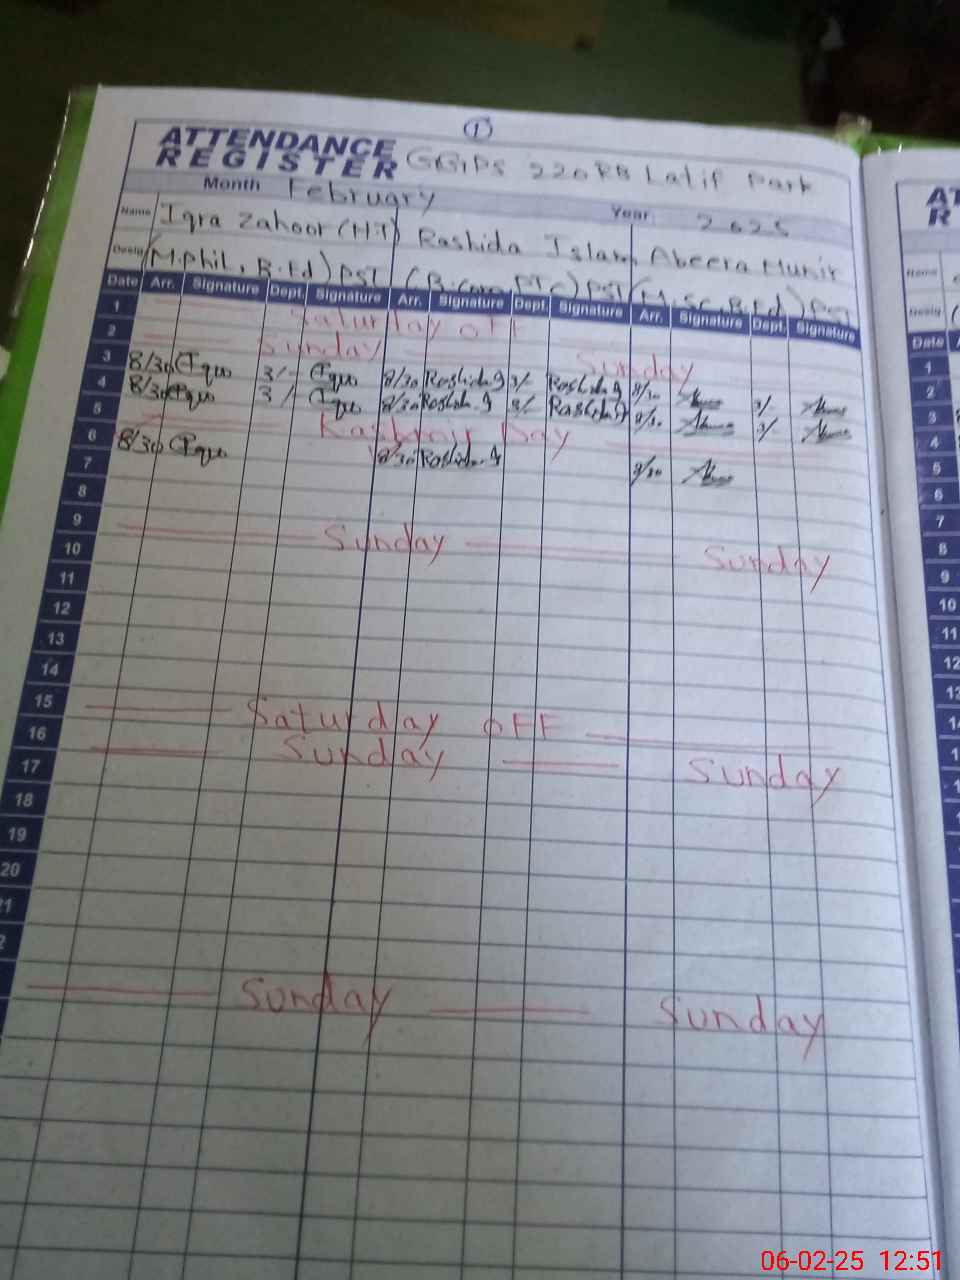 1
ATTENDANCE
REGISTER GGPS 220 RB Latif Park
Month February Year 2025
Name Iqra Zahoor (H.T) Rashida Islam Abeera Munir
Desig (M.Phil, B.Ed) PST (B.Com, PTC) PST (M.Sc, B.Ed) PST
Date Arr. Signature Dept. Signature Arr. Signature Dept. Signature Arr. Signature Dept. Signature
1 Saturday off
2 Sunday Sunday
3 8/30 Iqra 3/- Iqra 8/30 Rashida 3/- Rashida 8/30 3/-
4 8/30 Iqra 3/- Iqra 8/30 Rashida 3/- Rashida 8/30 3/-
5 Kashmir Day
6 8/30 Iqra 8/30 Rashida 8/30
7
8
9 Sunday Sunday
10
11
12
13
14
15 Saturday OFF
16 Sunday Sunday
17
18
19
20
Sunday Sunday
AT
R
Name
Desig
Date
1
2
3
4
5
6
7
8
9
10
11
12
06-02-25 12:51